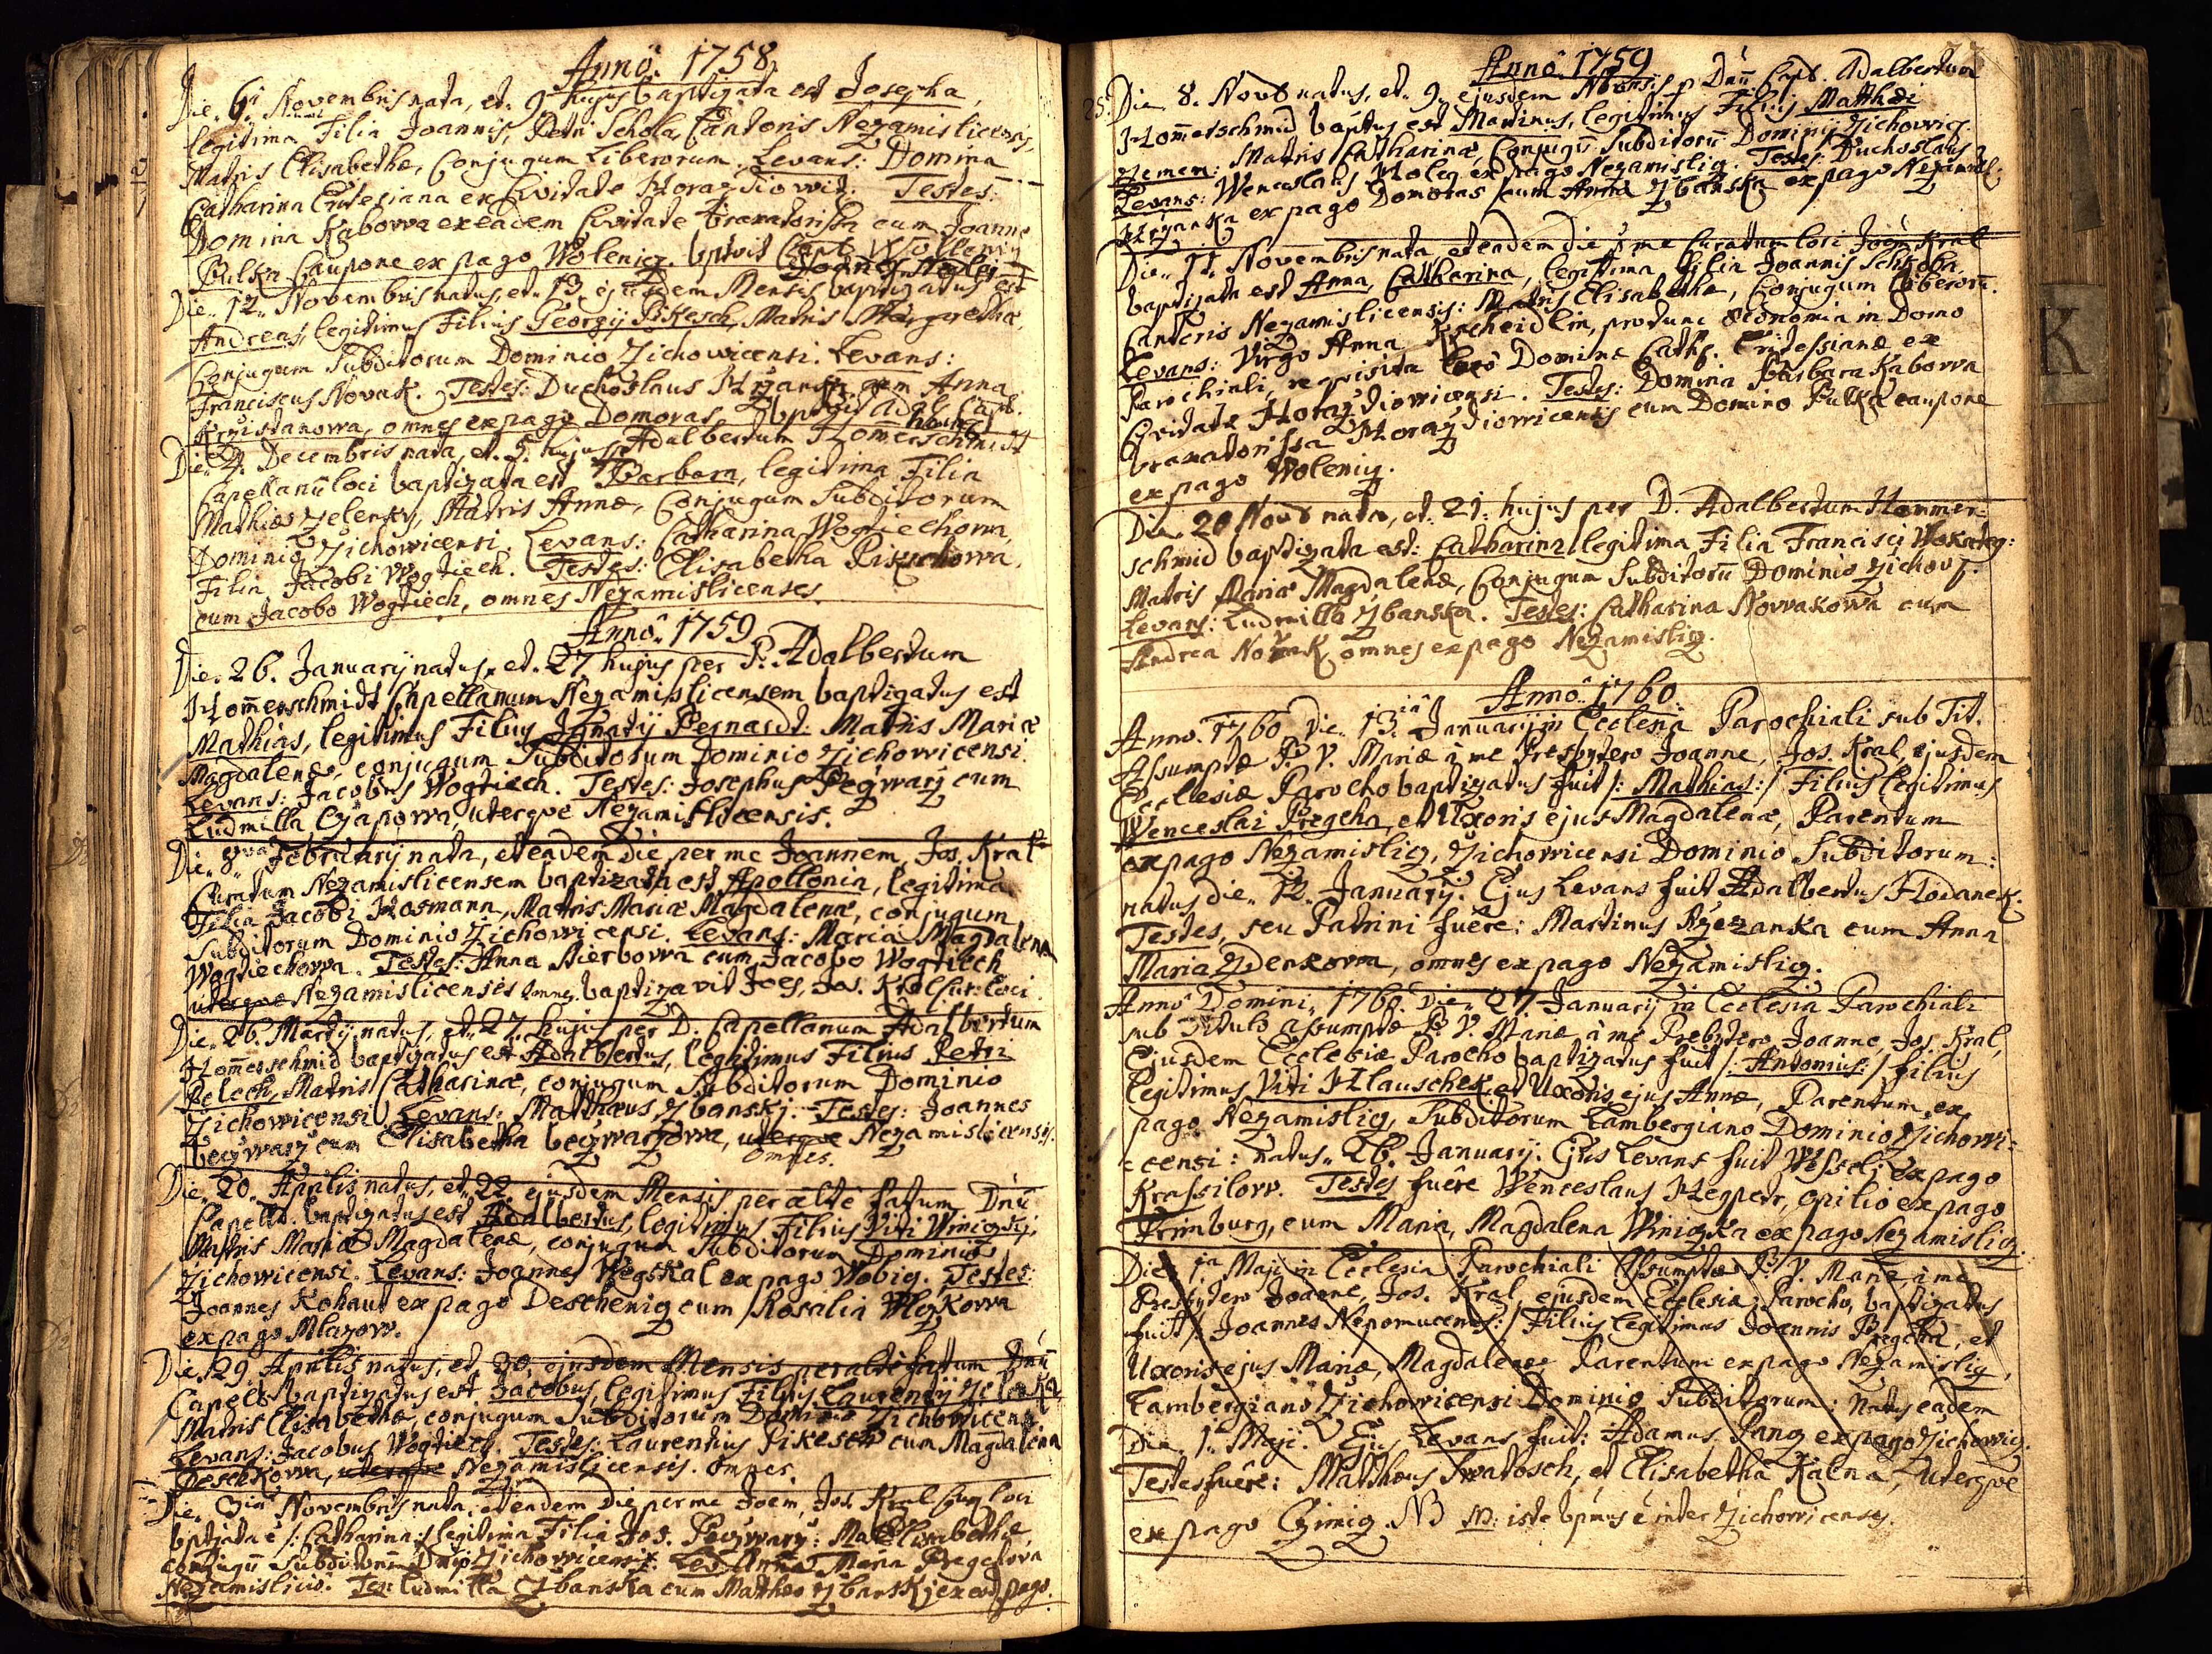 Anno 1758
Die 6 Novembris nata, et 9 hujus baptizata est Josepha,
legitima Filia Joannis, Petri Schola, Cantoris Nezamislicensis,
Matris Elisabethæ, Conjugum Liberorum. Levans: Domina
Catharina ex Civitate Horazdiowit. Testes:
Domina Kaborva ex eadem Civitate braxatorissa cum Joanne
Pulka Caupone ex pago Wolenicz.
Die 12 Novembris natus, et 13 ejusdem Mensis baptizatus est
Andreas, legitimus Filius Georgij Pikesch, Matris Margarethæ,
Conjugum Subditorum Dominio Zichowicensi. Levans:
Franciscus Novak. Testes: Duchoslaus cum Anna
omnes ex pago Domoras
Die 4. Decembris nata, et 5. hujus Adalbertum Homerschmidt
Capellanū loci baptizata est Barbara, legitima Filia
Mathiæ Zelenky, Matris Annæ, Conjugum Subditorum
Dominio Zichowicensi. Levans: Catharina Wogtiechowa,
Filia Jacobi Wogtiech. Testes: Elisabetha
cum Jacobo Wogtiech, omnes Nezamislicenses.
Anno 1759
Die 26. Januarij natus, et 27 hujus per P. Adalbertum
Hom̄erschmidt Capellanum Nezamislicensem baptizatus est
Mathias, legitimus Filius Ignatij Bernardt: Matris Mariæ
Magdalenæ, conjugum Subditorum Dominio Zichowicensi.
Levans: Jacobus Wogtiech. Testes: Josephus cum
Ludmilla Czaporva, uterque Nezamislicensis.
Die 8va Februarij nata, et eadem die per me Joannem, Jos. Kral
Curatum Nezamislicensem baptizata est Apollonia, legitima
Filia Jacobi Hosmann, Matris Mariæ Magdalenæ, conjugum
Subditorum Dominio Zichowicensi. Levans: Maria Magdalena
Wogtiechowa. Testes: Anna cum Jacobo Wogtiech
uterque Nezamislicenses omnes. baptizavit Joes, Jos. Kral Cur: loci.
Die 26. Martij natus, et 27. hujus per D. Capellanum Adalbertum
Hom̄erschmid baptizatus est Adalbertus, legitimus Filius Petri
Pelech, Matris Catharinæ, conjugum Subditorum Dominio
Zichowicensi. Levans: Matthæus Zbanskj. Testes: Joannes
cum Elisabetha uterque Nezamislicensis.
omnes.
Die 20 Aprilis natus, et 22 ejusdem Mensis per alte fatum Dnū
Capell. baptizatus est Adalbertus, legitimus Filius Viti
Matris Mariæ Magdalenæ, conjugum Subditorum Dominio
Zichowicensi. Levans: Joannes ex pago Wobicz. Testes:
Joannes Kohaut ex pago Deschenicz cum Rosalia Wlczkowa
ex pago Mlazow.
Die 29 Aprilis natus, et 30 ejusdem Mensis per alte fatum Dnū
Capell. baptizatus est Jacobus, legitimus Filius Laurentij
Matris Elisabethæ, conjugum Subditorum Dominio Zichowicensi.
Levans: Jacobus Wogtiech. Testes: Laurentius Pikesch cum Magdalena
Peschkowa, uterque Nezamislicensis. omnes.
Die 3ia Novembris nata, et eadem die per me Joem, Jos. Kral Cur: loci
bptizata e /: Catharina :/ legitima Filia Jos. Mat. Elisabethæ,
conjugū Subditorum Dnio Zichowicensi. Lev. Anna Maria
Nezamislicio. Tes: Ludmilla Zbanska cum Mattheo Zbanskj ex eod. pago.
Anno 1759
25. Die 8. Novb natus, et 9. ejusdem Mensis p Dnū Capl. Adalbertum
Hom̄erschmid baptus est Martinus, legitimus Filius Matthæi
Zemen: Matris Catharinæ, Conjugū Subditorū Dominij Zichowicz.
Levans: Wenceslaus ex pago Nezamislicz. Testes: Duchoslaus
ex pago Domoras cum Anna Zbanska ex pago Nezamisl.
Die 11. Novembris nata, et eadem die p me Curatum loci Joem Kral
baptizata est Anna, Catharina, legitima filia Joannis Schkoba
Cantoris Nezamislicensis: Matris Elisabethæ, Conjugum liberorū.
Levans: Virgo Anna pro tunc œconomia in Domo
Parochiali, requisita loco Dominæ Cath. ex
Civitate Horazdiowicensi. Testes: Domina Barbara Kaborva
braxatorissa Horazdiowicensis cum Domino Pulka caupone
ex pago Wolenicz.
Die 20 Novb nata, et 21. hujus per D. Adalbertum Hommer-
schmid baptizata est: Catharina legitima Filia Francisci
Matris Mariæ Magdalenæ, Conjugum Subditorū Dominio Zichov.
Levans: Ludmilla Zbanska. Testes: Catharina Novvakowa cum
Andrea Novak omnes ex pago Nezamislicz.
Anno 1760.
Anno 1760 Die 13. Januarij in Ecclesia Parochiali sub Tit.
Assumptæ B. V. Mariæ à me Presbytero Joanne, Jos. Kral, ejusdem
Ecclesiæ Parocho baptizatus fuit /: Mathias :/ Filius legitimus
Wenceslai Pregeha, et Uxoris ejus Magdalenæ, Parentum
ex pago Nezamislicz, Zichowicensi Dominio Subditorum:
natus die 12. Januarij. Ejus Levans fuit Adalbertus Hodanek.
Testes, seu Patrini fuêre: Martinus cum Anna
Maria Zdenkowa, omnes ex pago Nezamislicz.
Anno Domini 1760 Die 27 Januarij in Ecclesia Parochiali
sub titulo assumptæ B. V. Mariæ à me Prebytero Joanne Jos Kral,
Ejusdem Ecclesiæ Parocho baptizatus fuit /: Antonius :/ filius
legitimus Viti Hlauschek et Uxoris ejus Annæ, Parentum ex
pago Nezamislicz, Subditorum Lambergiano Dominio Zichowi-
censi: natus 26. Januarij. Ejus Levans fuit Wesselj ex pago
Krassilow. Testes fuêre Wenceslaus opilio ex pago
Frimburg, cum Maria, Magdalena ex pago Nezamislicz.
Die 1a Maji in Ecclesia Parochiali Assumptæ B. V. Mariæ à me
Presbytero Joanne, Jos. Kral, ejusdem Ecclesiæ Parocho, baptizatus
fuit /: Joannes Nepomucenus :/ Filius legitimus Joannis Pregeha, et
Uxoris ejus Mariæ, Magdalenæ Parentum ex pago Nezamislicz,
Lambergiano Zichowicensi Dominio Subditorum: natus eadem
Die 1. Maji. Ejus Levans fuit: Adamus Pang ex pago Zichowicz.
Testes fuêre: Matthæus Swatosch, et Elisabetha Kalna, uterque
ex pago Czimicz. NB NB: iste bpmus e inter Zichowicenses.
K